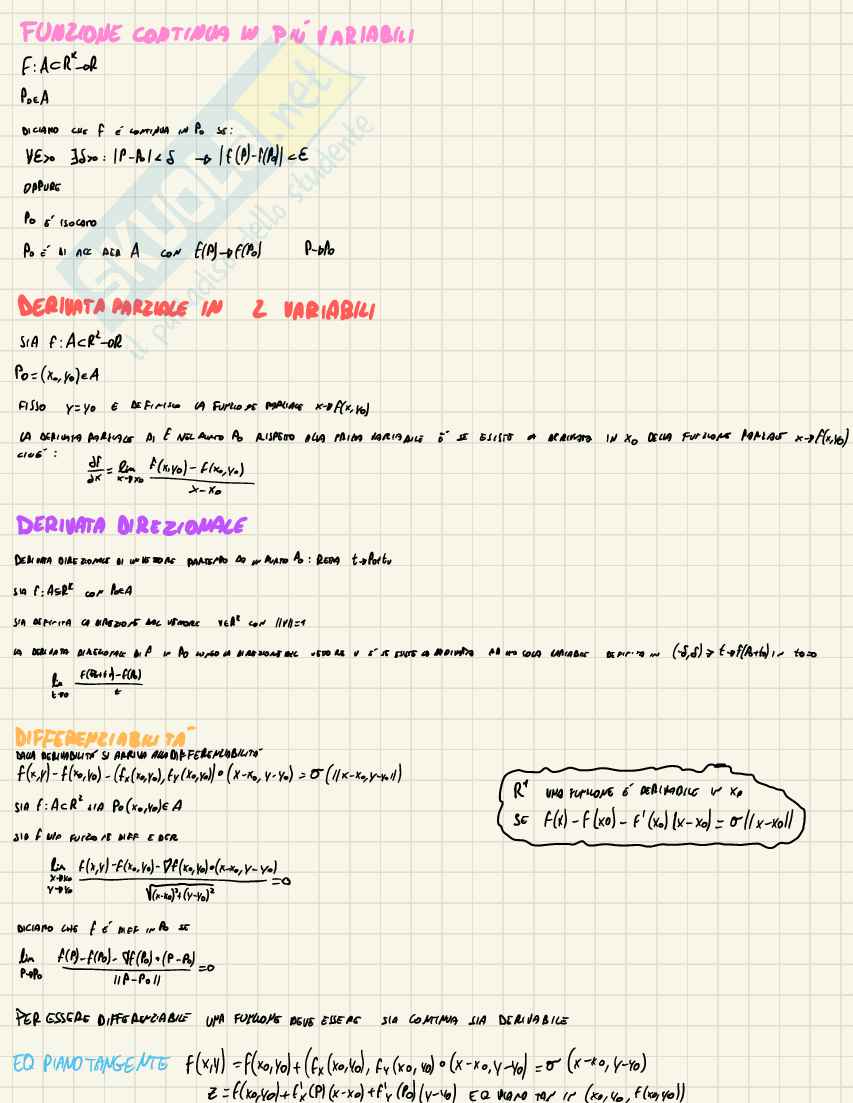 FUNZIONE CONTINUA IN PIÚ VARIABILI
F: A⊂R^k→R
P₀∈A
DICIAMO CHE F É CONTINUA IN P₀ SE:
∀ε>0 ∃δ>0: |P-P₀|<δ → |f(P)-f(P₀)|<ε
OPPURE
P₀ É ISOLATO
P₀ É DI ACC PER A CON f(P)→f(P₀) P→P₀
SKUOLA.net
il paradiso dello studente
DERIVATA PARZIALE IN 2 VARIABILI
SIA f: A⊂R²→R
P₀=(x₀,y₀)∈A
FISSO y=y₀ E DEFINISCO LA FUNZIONE PARZIALE x→f(x,y₀)
LA DERIVATA PARZIALE DI F NEL PUNTO P₀ RISPETTO ALLA PRIMA VARIABILE É SE ESISTE LA DERIVATA IN x₀ DELLA FUNZIONE PARZIALE x→f(x,y₀)
CIOÉ:
∂f/∂x = lim x→x₀ (f(x,y₀)-f(x₀,y₀))/(x-x₀)
DERIVATA DIREZIONALE
DERIVATA DIREZIONALE DI UN VETTORE PARTENDO DA UN PUNTO P₀: RETTA t→P₀+tv
SIA f: A⊆R^k CON P₀∈A
SIA DEFINITA LA DIREZIONE DAL VETTORE v∈R² CON ||v||=1
LA DERIVATA DIREZIONALE DI f IN P₀ LUNGO LA DIREZIONE DEL VETTORE v É SE ESISTE LA DERIVATA AD UNA SOLA VARIABILE DEFINITA IN (-δ,δ)∋t→f(P₀+tv) IN t₀=0
lim t→0 (f(P₀+tv)-f(P₀))/t
DIFFERENZIABILITÁ
DALLA DERIVABILITÁ SI ARRIVA ALLA DIFFERENZIABILITÁ
f(x,y)-f(x₀,y₀)-(fx(x₀,y₀),fy(x₀,y₀))•(x-x₀,y-y₀)=σ(||x-x₀,y-y₀||)
SIA f: A⊂R² SIA P₀(x₀,y₀)∈A
R¹ UNA FUNZIONE É DERIVABILE IN x₀
SE f(x)-f(x₀)-f'(x₀)(x-x₀)=σ||x-x₀||
SIA f UNA FUNZIONE DIFF E DER
lim x→x₀ y→y₀ (f(x,y)-f(x₀,y₀)-∇f(x₀,y₀)•(x-x₀,y-y₀))/√((x-x₀)²+(y-y₀)²)=0
DICIAMO CHE f É DIFF IN P₀ SE
lim P→P₀ (f(P)-f(P₀)-∇f(P₀)•(P-P₀))/||P-P₀||=0
PER ESSERE DIFFERENZIABILE UNA FUNZIONE DEVE ESSERE SIA CONTINUA SIA DERIVABILE
EQ PIANO TANGENTE f(x,y)=f(x₀,y₀)+(fx(x₀,y₀),fy(x₀,y₀)•(x-x₀,y-y₀)=σ(x-x₀,y-y₀)
z=f(x₀,y₀)+f'x(P)(x-x₀)+f'y(P₀)(y-y₀) EQ PIANO TAN IN (x₀,y₀,f(x₀,y₀))